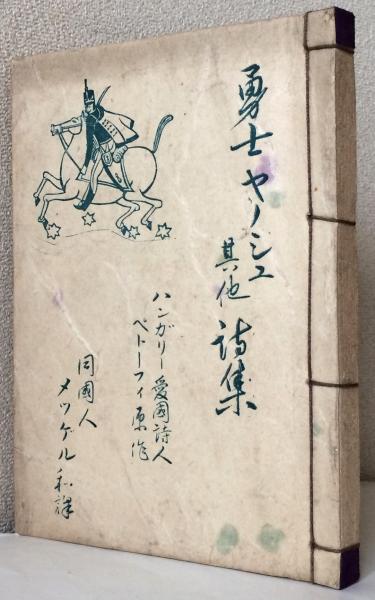 勇士ヤノシュ其他詩集
ハンガリー愛國詩人
ペトーフィ原作
同國人
メツゲル和譯